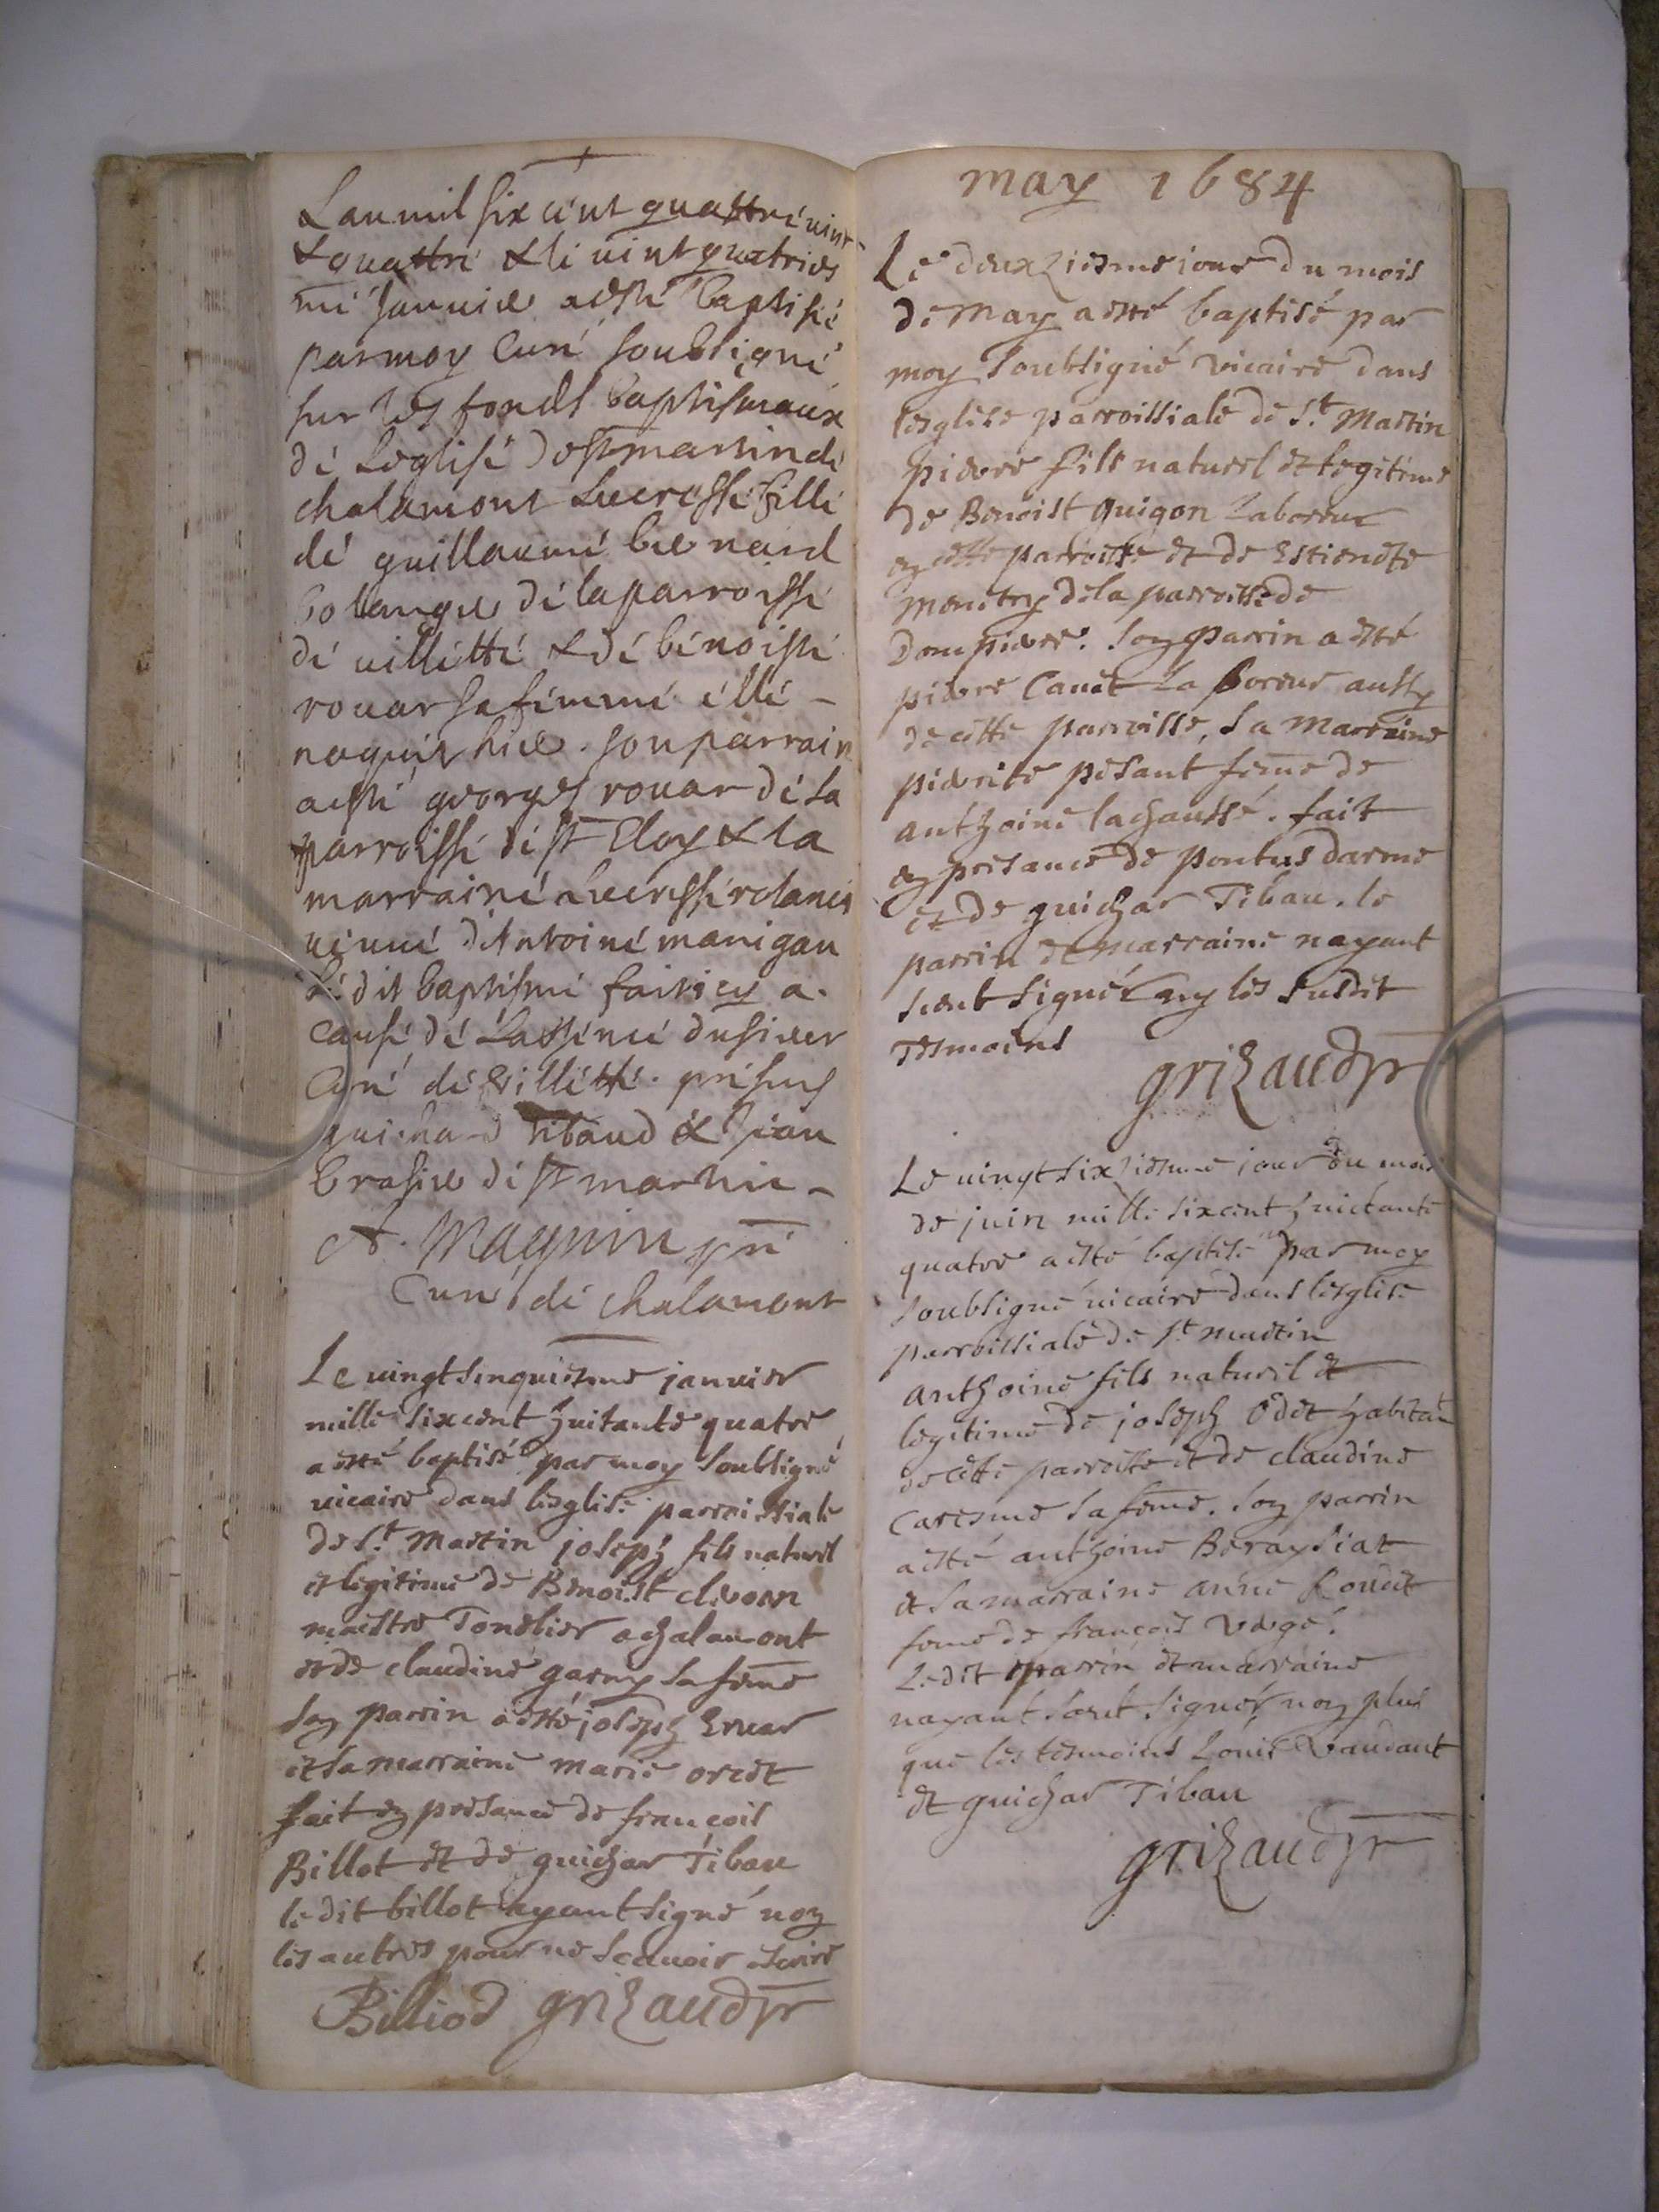 Lan mil six cent quattre vint
& quattre & le vint quatries
me Janvier a esté baptisé
par moy Curé soubsigné
sur les fonds baptismaux
de Leglise de st martin de
chalamont Lucresse fille
de guillaume bernard
bolanger de la parroisse
de villette & de benoiste
rouar sa femme elle
naquit hier. son parrain
a esté georges rouar de la
parroisse de st Eloy & la
marraine Lucresse
veuve d'Antoine manigan
Le dit baptesme fait icy a
cause de Labsence du sieur
Curé de Villette. presens
guichard Tibaud & Jean
brasier de st martin
A. Magnin ptre
Curé de chalamont
Le vingt sinquiesme janvier
mille sixcent huitante quatre
a esté baptisé par moy soubsigné
vicaire dans lesglise parroissiale
de St Martin joseph fils naturel
et legitime de Benoist
maistre Tonelier a chalamont
et de claudine garny sa feme
son parrin a esté joseph
et sa marraine marie oret
fait en presance de françois
Billot et de guichar Tibau
le dit billot ayant signé non
les autres pour ne scavoir escrire
Billiod grizaud ptr
may 1684
Le deuxziesme jour du mois
de May a esté baptisé par
moy soubsigné vicaire dans
lesglise parroissiale de St Martin
pierre fils naturel et legitime
de Benoist guigon Laboreur
en cette parroisse et de Estienete
monitry de la parroisse de
Dompierre. son parrin a esté
pierre Canet Laboreur aussy
de cette parroisse, sa Marraine
pierete pesant feme de
anthoine lachaussé. fait
en presance de pontus darme
et de guichar Tibau. le
parrin et marraine nayant
sceut signér ny les susdit
Tesmoins
grizaud ptr
Le vingt sixziesme jour du mois
de juin mille sixcent huictante
quatre a esté baptisé par moy
soubsigné vicaire dans lesglise
parroissiale de St martin
anthoine fils naturel et
legitime de joseph Odet habitan
de cete parroisse et de claudine
caresme sa feme. son parrin
a esté anthoine Beraysiat
et sa marraine anne
feme de françois vergé.
Ledit parrin et marraine
nayant sceut signér non plus
que les tesmoins Louis Vaudant
et guichar Tibau
grizaud ptr